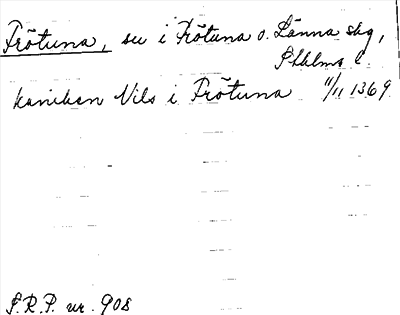 Frötuna, sn i Frötuna o. Länna skg,
Sthlms l.
kaniken Nils i Frötuna 11/11 1369
S.R.P. nr. 908